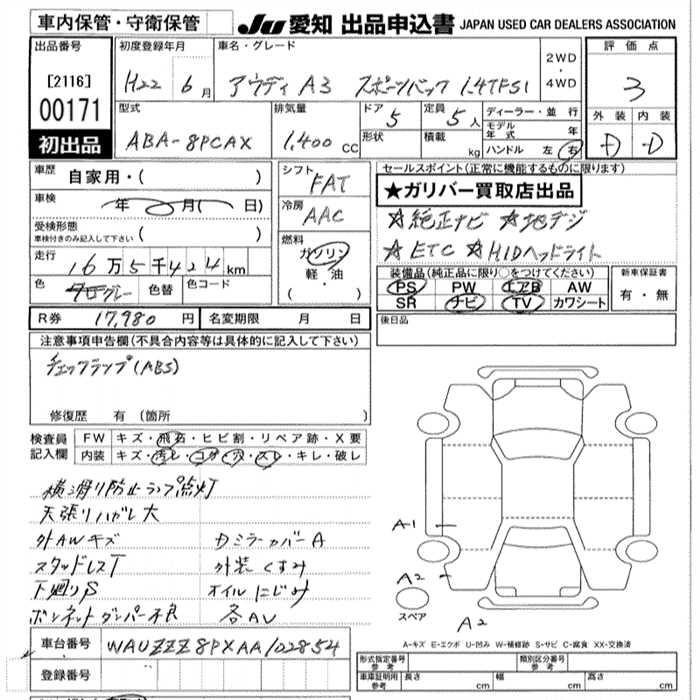 車内保管・守衛保管
JU 愛知 出品申込書 JAPAN USED CAR DEALERS ASSOCIATION
出品番号
[2116]
00171
初出品
初度登録年月
H22年 6月
車名・グレード
アウディ A3 スポーツバック 1.4TFSI
2WD
・
4WD
評価点
3
型式
ABA-8PCAX
排気量
1,400 CC
ドア
5
定員
5人
形状
積載
kg
ディーラー・並行
モデル年式 年
ハンドル 左 右
外装 内装
D D
車歴 自家用・( )
車検 年 月( 日)
受検形態
車検付きのみ記入して下さい ( )
走行 16万5千424km
色 グレー 色替 色コード
シフト
FAT
冷房
AAC
燃料
ガソリン
軽・油
( ・ )
セールスポイント(正常に機能するものに限ります)
★ガリバー買取店出品
☆純正ナビ ☆地デジ
☆ETC ☆HIDヘッドライト
装備品(純正品に限り○をつけてください)
PS PW エアB AW
SR ナビ TV カワシート
新車保証書
有・無
R券 17,980円 名変期限 月 日
後日品
注意事項申告欄(不具合内容等は具体的に記入して下さい)
チェックランプ(ABS)
修復歴 有(箇所 )
検査員記入欄
FW キズ・飛石・ヒビ割・リペア跡・X要
内装 キズ・汚レ・コゲ・穴・スレ・キレ・破レ
横滑り防止ランプ点灯
天張リハガレ大
外AWキズ カミラーカバーA
スタッドレスT 外装くすみ
下廻りS オイルにじみ
ボンネットダンパー不良 各AU
A1
A2
スペア
A2
A-キズ E-エクボ U-凹み W-補修跡 S-サビ C-腐食 XX-交換済
車台番号 WAUZZZ8PXAA102854
登録番号
形式指定番号 参考 類別区分番号 参考
車庫証明用 参考 長さ cm 幅 cm 高さ cm